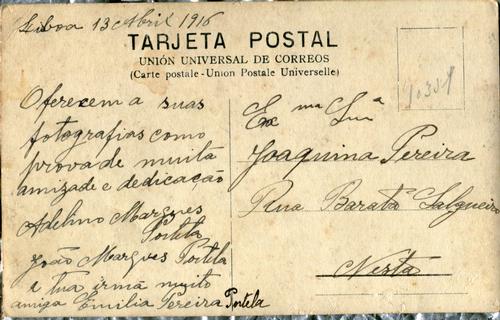 Lisboa 13 Abril 1916
TARJETA POSTAL
UNIÓN UNIVERSAL DE CORREOS
(Carte postale - Union Postale Universelle)
Oferecem a suas
fotografias como
prova de muita
amizade e dedicação
Adelino Marques
Portela
João Marques Portela
e tua irmã muito
amiga Emilia Pereira Portela
Exma Snra
Joaquina Pereira
Rua Barata Salgueiro
Nesta